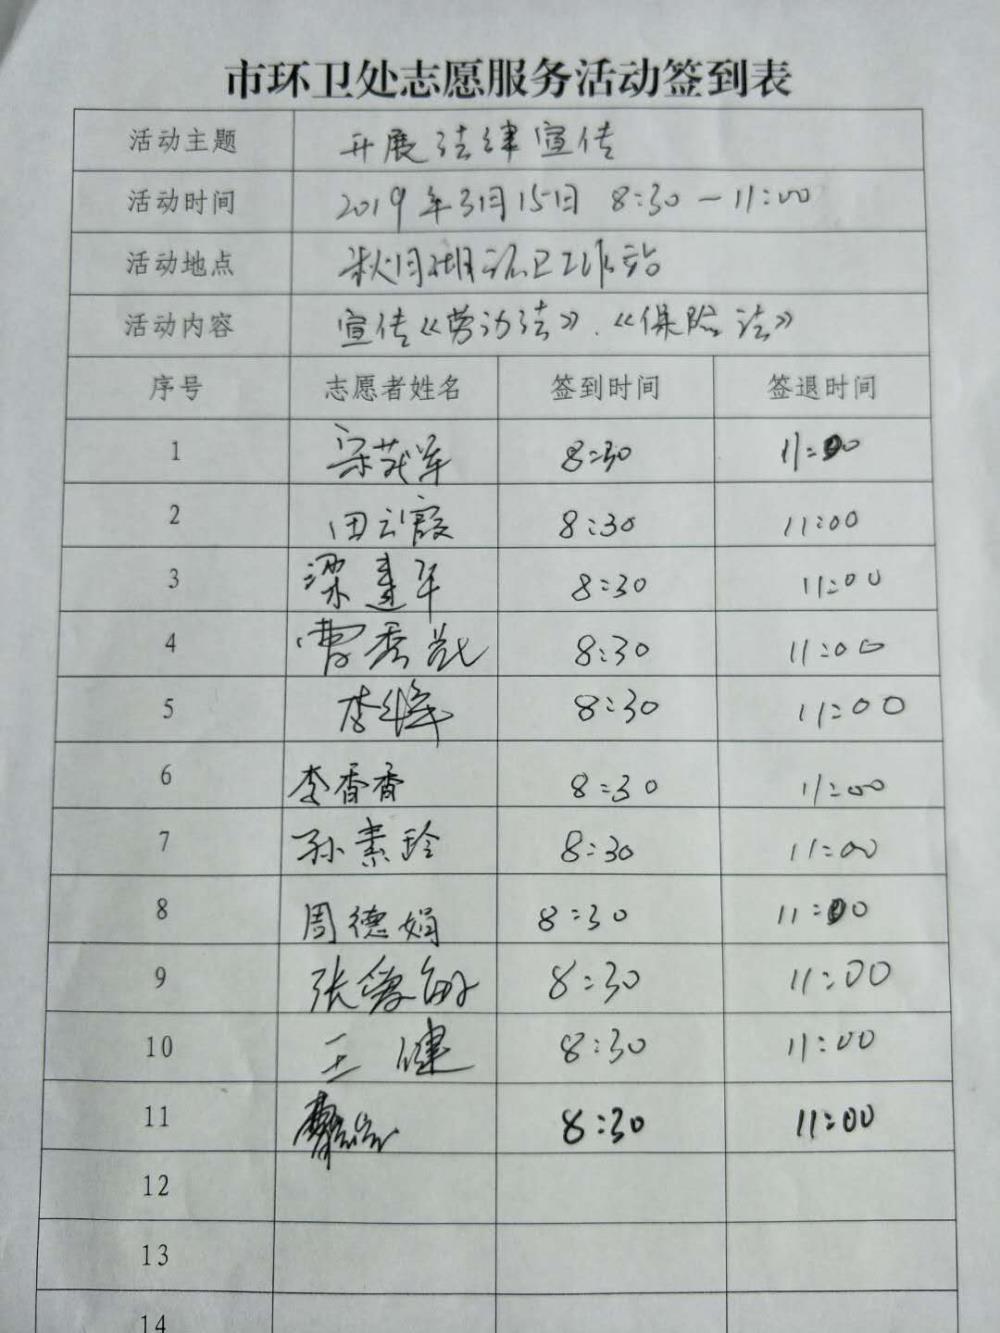 市环卫处志愿服务活动签到表
活动主题 开展法律宣传
活动时间 2019年3月15日 8:30-11:00
活动地点 秋月湖环卫工作站
活动内容 宣传《劳动法》、《保险法》
序号 志愿者姓名 签到时间 签退时间
1 宋茂军 8:30 11:00
2 田云霞 8:30 11:00
3 梁建军 8:30 11:00
4 曹秀花 8:30 11:00
5 李 8:30 11:00
6 李香香 8:30 11:00
7 孙素玲 8:30 11:00
8 周德娟 8:30 11:00
9 张爱敏 8:30 11:00
10 王健 8:30 11:00
11 8:30 11:00
12
13
14